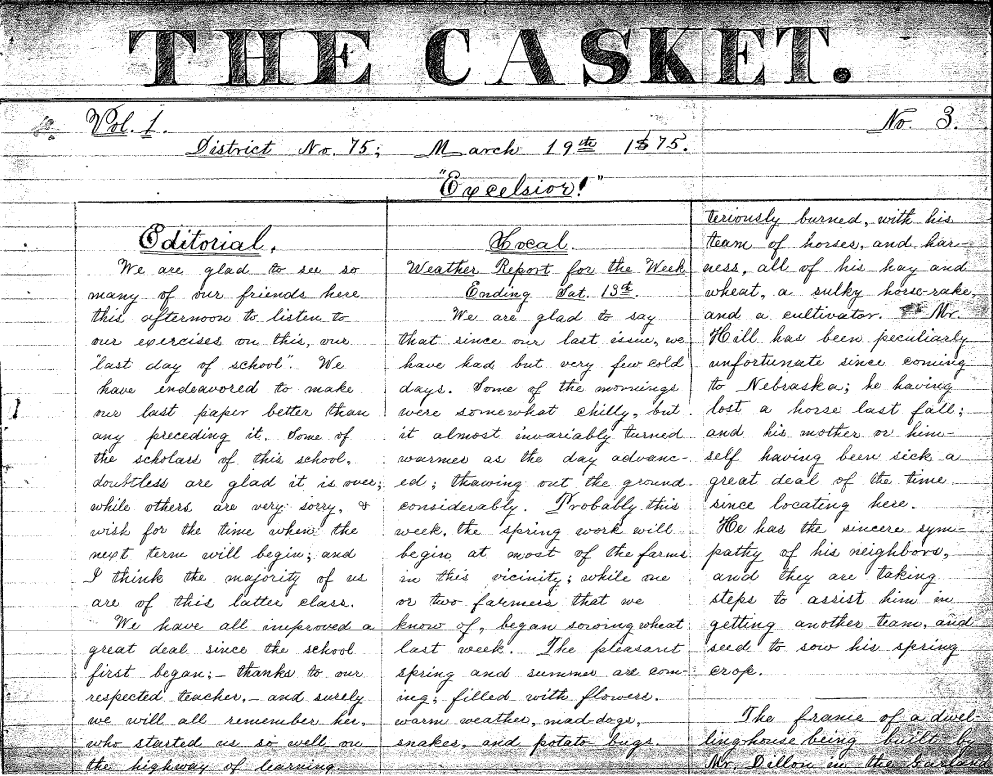 THE CASKET.
Vol. 1.
No. 3.
District No. 75; March 19th 1875.
"Excelsior!"
Editorial.
We are glad to see so
many of our friends here
this afternoon to listen to
our exercises on this, our
"last day of school". We
have indeavored to make
our last paper better than
any preceding it. Some of
the scholars of this school,
doubtless are glad it is over;
while others are very sorry, &
wish for the time when the
next term will begin; and
I think the majority of us
are of this latter class.
We have all improved a
great deal since the school
first began; – thanks to our
respected teacher, – and surely
we will all remember her,
who started us so well on
the highway of learning.
Local.
Weather Report for the Week
Ending Sat. 13th.
We are glad to say
that since our last issue, we
have had but very few cold
days. Some of the mornings
were somewhat chilly, but
it almost invariably turned
warmer as the day advanc-
ed; thawing out the ground
considerably. Probably this
week, the spring work will
begin at most of the farms
in this vicinity; while one
or two farmers that we
know of, began sowing wheat
last week. The pleasant
spring and summer are com-
ing; filled with flowers,
warm weather, mad dogs,
snakes, and potato bugs.
teriously burned, with his
team of horses, and har-
ness, all of his hay and
wheat, a sulky horse-rake,
and a cultivator. Mr.
Hill has been peculiarly
unfortunate since coming
to Nebraska; he having
lost a horse last fall;
and his mother or him-
self having been sick a
great deal of the time
since locating here.
He has the sincere sym-
pathy of his neighbors,
and they are taking
steps to assist him in
getting another team, and
seed to sow his spring
crop.
The frame of a dwel-
linghouse being built by
Mr. Dillon in the Garland